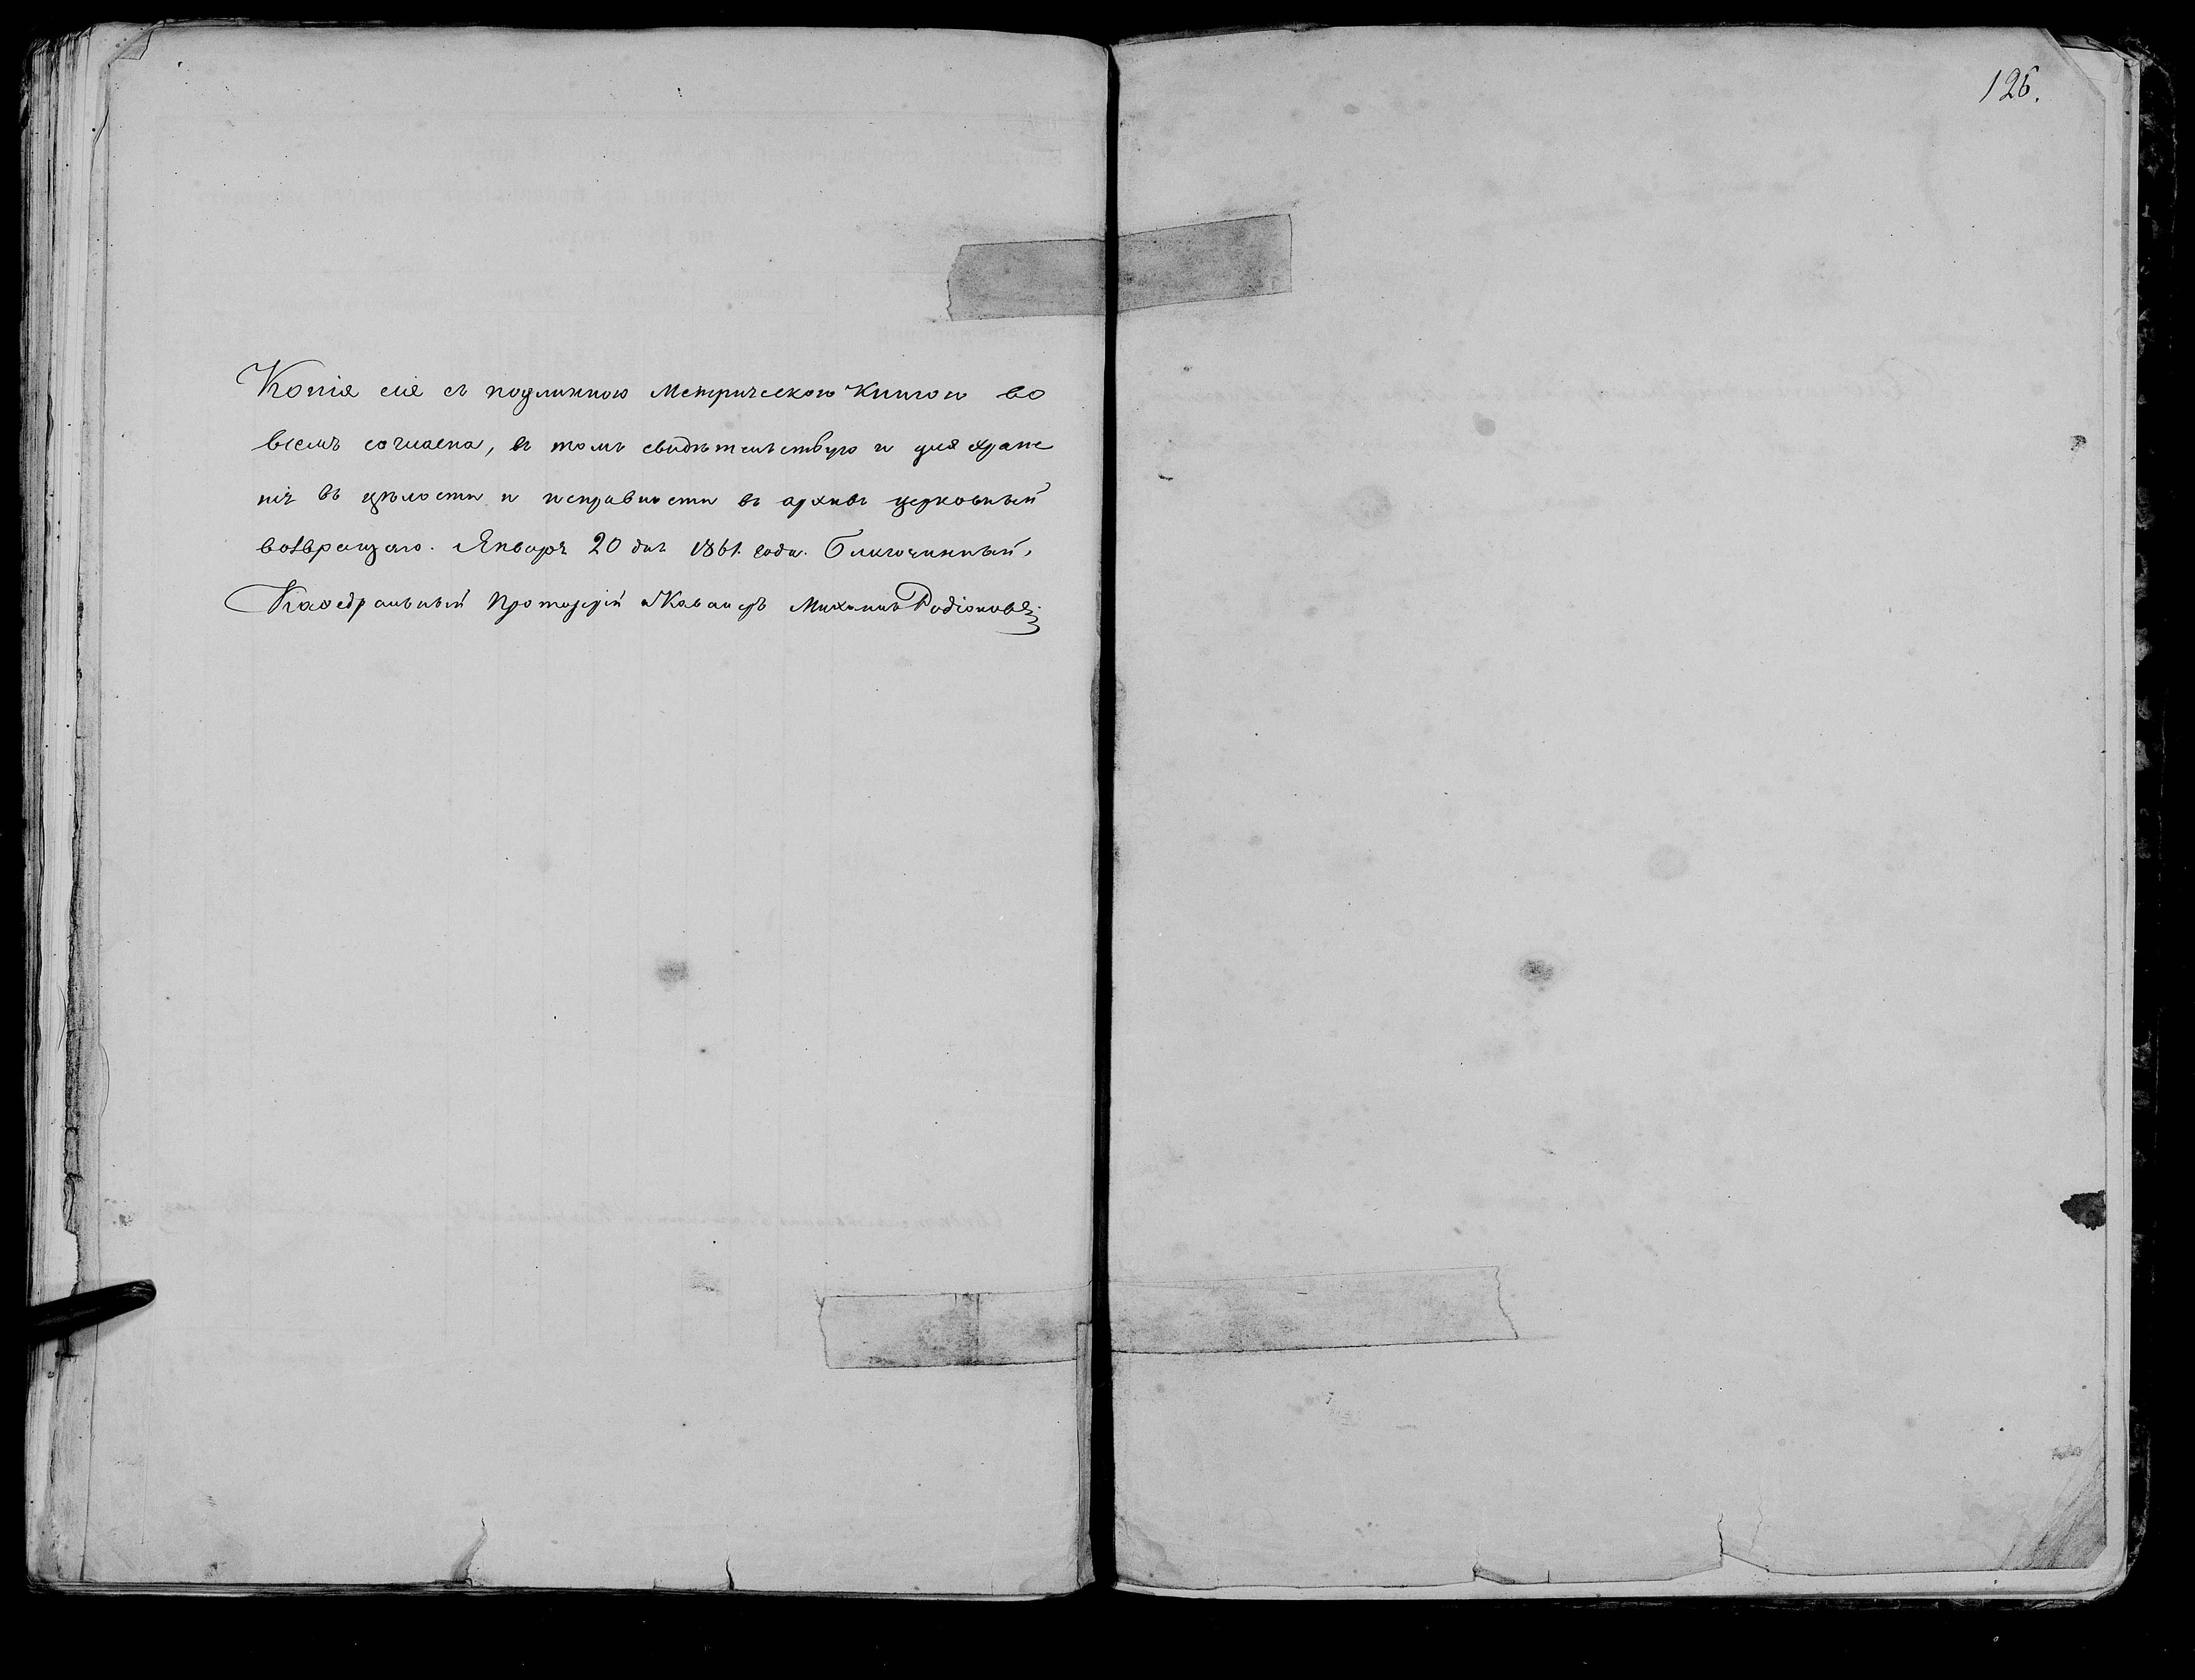 Копія сія съ подлинною Метрическою Книгою во
всемъ согласна, въ томъ свидѣтельствую и для хране
нія въ цѣлости и исправности въ архивъ церковный
возвращаю. Января 20 дня 1861. года. Благочинный,
Каѳедральный Протоіерей и Кавалеръ Михаилъ Родіоновъ.
126.